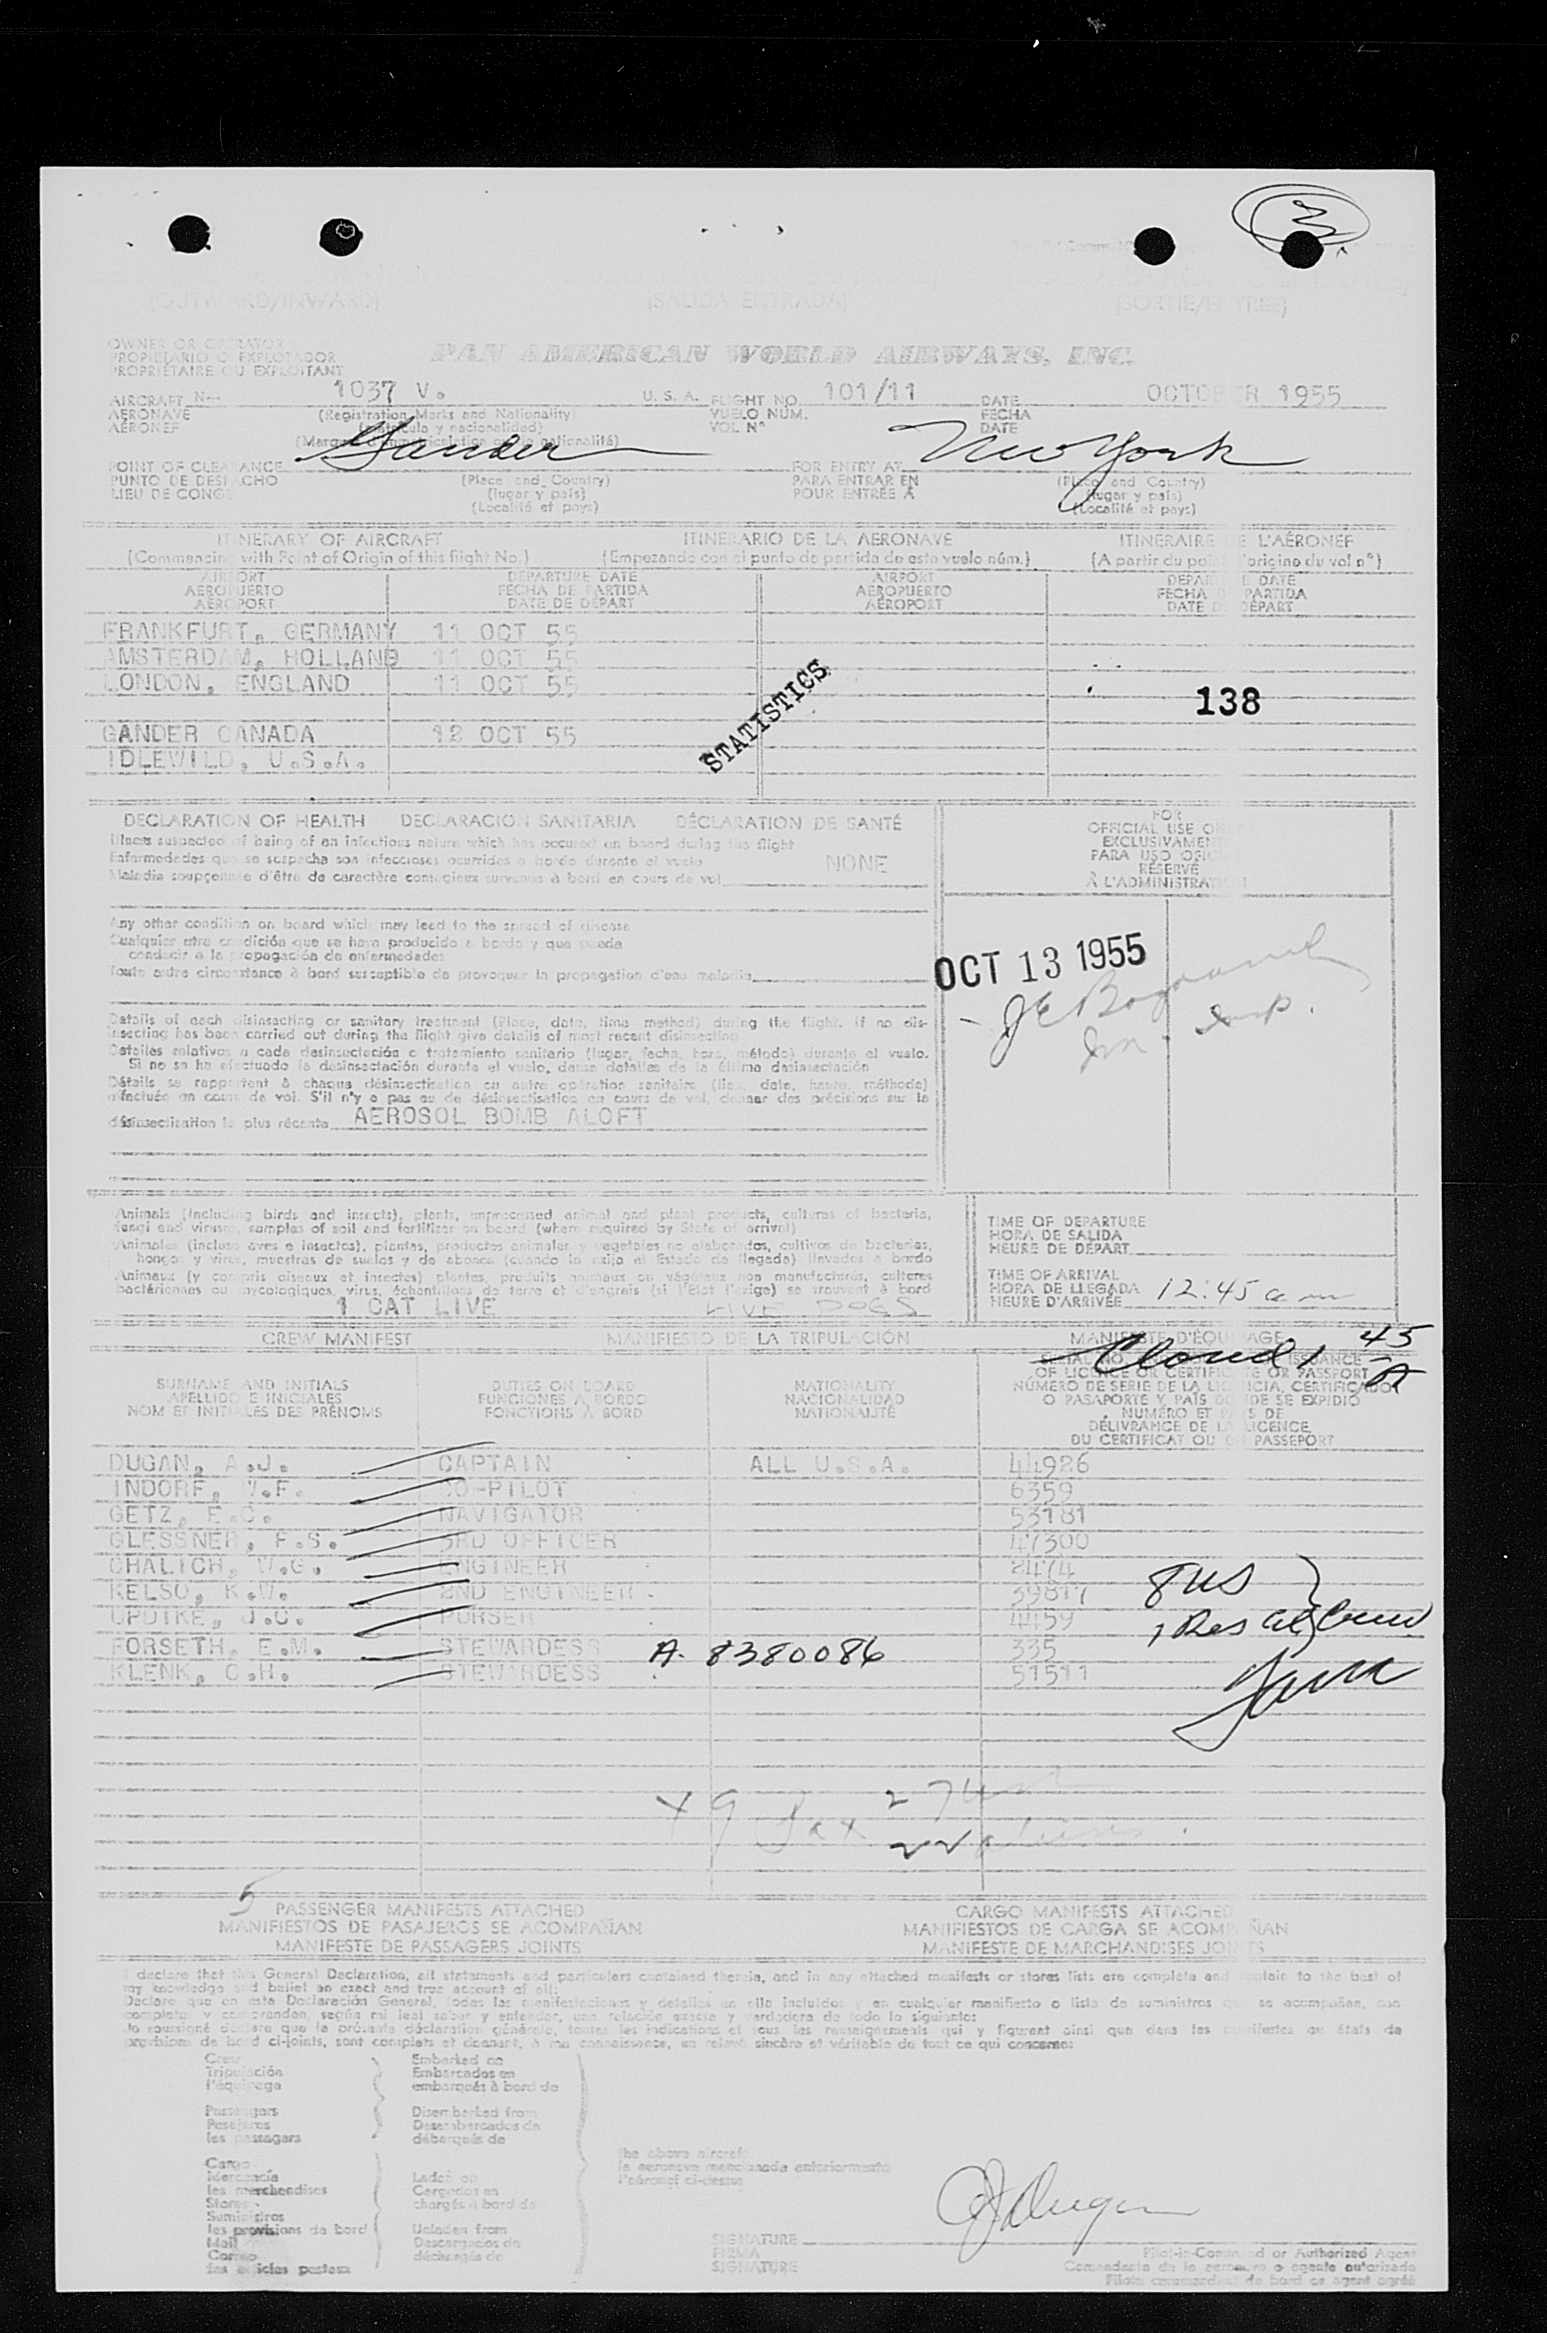 3
(OUTWARD/INWARD) (SALIDA ENTRADA) (SORTIE/ENTREE)
OWNER OR OPERATOR
PROPIETARIO O EXPLOTADOR
PROPRIÉTAIRE OU EXPLOITANT
PAN AMERICAN WORLD AIRWAYS, INC.
AIRCRAFT N— 1037 V. U. S. A. FLIGHT NO. 101/11 DATE OCTOBER 1955
AERONAVE (Registration Marks and Nationality) VUELO NÚM. FECHA
AÉRONEF (matrícula y nacionalidad) VOL Nº DATE
(Marques d'immatriculation et la nationalité)
Gander New York
POINT OF CLEARANCE FOR ENTRY AT
PUNTO DE DESPACHO (Place and Country) PARA ENTRAR EN (Place and Country)
LIEU DE CONGÉ (lugar y país) POUR ENTRÉE À (lugar y país)
(Localité et pays) (Localité et pays)
ITINERARY OF AIRCRAFT ITINERARIO DE LA AERONAVE ITINÉRAIRE DE L'AÉRONEF
(Commencing with Point of Origin of this flight No.) (Empezando con el punto de partida de este vuelo núm.) (A partir du point d'origine du vol nº)
AIRPORT DEPARTURE DATE AIRPORT DEPARTURE DATE
AEROPUERTO FECHA DE PARTIDA AEROPUERTO FECHA DE PARTIDA
AÉROPORT DATE DE DÉPART AÉROPORT DATE DE DÉPART
FRANKFURT, GERMANY 11 OCT 55
AMSTERDAM, HOLLAND 11 OCT 55
LONDON, ENGLAND 11 OCT 55
STATISTICS
138
GANDER CANADA 12 OCT 55
IDLEWILD, U.S.A.
DECLARATION OF HEALTH DECLARACIÓN SANITARIA DÉCLARATION DE SANTÉ
Illness suspected of being of an infectious nature which has occured on board during the flight
Enfermedades que se sospecha son infecciosas ocurridas a bordo durante el vuelo NONE
Maladie soupçonnée d'être de caractère contagieux survenue à bord en cours de vol
FOR
OFFICIAL USE ONLY
EXCLUSIVAMENTE
PARA USO OFICIAL
RÉSERVÉ
À L'ADMINISTRATION
Any other condition on board which may lead to the spread of disease
Cualquier otra condición que se haya producido a bordo y que pueda
conducir a la propagación de enfermedades
Toute autre circonstance à bord susceptible de provoquer la propagation d'une maladie
OCT 13 1955
Details of each disinsecting or sanitary treatment (Place, date, time method) during the flight. If no dis-
insecting has been carried out during the flight give details of most recent disinsecting
Detalles relativos a cada desinsectación o tratamiento sanitario (lugar, fecha, hora, método) durante el vuelo.
Si no se ha efectuado la desinsectación durante el vuelo, dense detalles de la última desinsectación
Détails se rapportant à chaque désinsectisation ou autre opération sanitaire (lieu, date, heure, méthode)
effectuée en cours de vol. S'il n'y a pas eu de désinsectisation en cours de vol, donner des précisions sur la
désinsectisation la plus récente AEROSOL BOMB ALOFT
Animals (including birds and insects), plants, unprocessed animal and plant products, cultures of bacteria,
fungi and viruses, samples of soil and fertilizer on board (where required by State of arrival)
Animales (incluso aves e insectos), plantas, productos animales y vegetales no elaborados, cultivos de bacterias,
hongos y virus, muestras de suelos y de abonos (cuando lo exija el Estado de llegada) llevados a bordo
Animaux (y compris oiseaux et insectes) plantes, produits animaux ou végétaux non manufacturés, cultures
bactériennes ou mycologiques, virus, échantillons de terre et d'engrais (si l'État l'exige) se trouvant à bord
1 CAT LIVE LIVE DOGS
TIME OF DEPARTURE
HORA DE SALIDA
HEURE DE DÉPART
TIME OF ARRIVAL
HORA DE LLEGADA 12:45 am
HEURE D'ARRIVÉE
CREW MANIFEST MANIFIESTO DE LA TRIPULACIÓN MANIFESTE D'ÉQUIPAGE
45
A
SURNAME AND INITIALS DUTIES ON BOARD NATIONALITY
APELLIDO E INICIALES FUNCIONES A BORDO NACIONALIDAD
NOM ET INITIALES DES PRÉNOMS FONCTIONS À BORD NATIONALITÉ
OF LICENCE OR CERTIFICATE OR PASSPORT
NÚMERO DE SERIE DE LA LICENCIA, CERTIFICADO
O PASAPORTE Y PAÍS DONDE SE EXPIDIÓ
NUMÉRO ET PAYS DE
DÉLIVRANCE DE LA LICENCE,
DU CERTIFICAT OU DU PASSEPORT
DUGAN, A.J. CAPTAIN ALL U.S.A. 44926
INDORF, W.F. CO-PILOT 6359
GETZ, E.C. NAVIGATOR 53181
GLESSNER, F.S. 3RD OFFICER 47300
CHALICH, W.G. ENGINEER 2474
KELSO, K.W. 2ND ENGINEER 39817
UPDIKE, J.C. PURSER 4459
FORSETH, E.M. STEWARDESS A-8380086 335
KLENK, C.H. STEWARDESS 51511
8 US
1 Res al
49 Pax
5 PASSENGER MANIFESTS ATTACHED CARGO MANIFESTS ATTACHED
MANIFIESTOS DE PASAJEROS SE ACOMPAÑAN MANIFIESTOS DE CARGA SE ACOMPAÑAN
MANIFESTE DE PASSAGERS JOINTS MANIFESTE DE MARCHANDISES JOINTS
I declare that this General Declaration, all statements and particulars contained therein, and in any attached manifests or stores lists are complete and contain to the best of
my knowledge and belief an exact and true account of all:
Declaro que en esta Declaración General, todas las manifestaciones y detalles en ella incluidos y en cualquier manifiesto o lista de suministros que se acompañen, son
completos y comprenden, según mi leal saber y entender, una relación exacta y verdadera de todo lo siguiente:
Je soussigné déclare que la présente déclaration générale, toutes les indications et tous les renseignements qui y figurent ainsi que dans les manifestes ou états de
provisions de bord ci-joints, sont complets et donnent, à ma connaissance, un relevé sincère et véritable de tout ce qui concerne:
Crew Embarked on
Tripulación Embarcados en
l'équipage embarqués à bord de
Passengers Disembarked from
Pasajeros Desembarcados de
les passagers débarqués de
the above aircraft
la aeronave mencionada anteriormente
l'aéronef ci-dessus
Cargo
Mercancía Laden on
les marchandises Cargados en
Stores chargés à bord de
Suministros
les provisions de bord Unladen from
Mail Descargados de
Correo déchargés de
les articles postaux
AJ Dugan
SIGNATURE
FIRMA
SIGNATURE
Pilot-in-Command or Authorized Agent
Comandante de la aeronave o agente autorizado
Pilote commandant de bord ou agent agréé